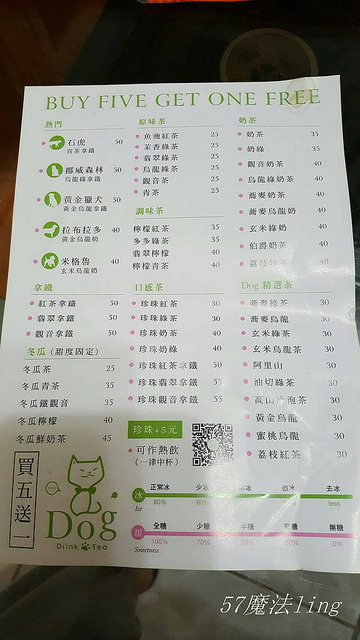 BUY FIVE GET ONE FREE
熱門
石虎 50
青茶拿鐵
挪威森林 50
烏龍綠拿鐵
黃金獵犬 50
黃金烏龍拿鐵
拉布拉多 40
黃金烏龍奶
米格魯 40
玄米烏龍奶
拿鐵
紅茶拿鐵 50
翡翠拿鐵 50
觀音拿鐵 50
冬瓜 (甜度固定)
冬瓜茶 25
冬瓜青茶 35
冬瓜鐵觀音 35
冬瓜檸檬 40
冬瓜鮮奶茶 45
原味茶
魚池紅茶 25
茉香綠茶 25
翡翠綠茶 25
烏龍綠茶 25
觀音茶 25
青茶 25
調味茶
檸檬紅茶 35
多多綠茶 35
翡翠檸檬 40
檸檬青茶 40
口感茶
珍珠紅茶 30
珍珠綠茶 30
珍珠奶茶 40
珍珠奶綠 40
珍珠紅茶拿鐵 55
珍珠翡翠拿鐵 55
珍珠觀音拿鐵 55
珍珠+5元
可作熱飲
(一律中杯)
奶茶
奶茶 35
奶綠 35
觀音奶茶 40
烏龍綠奶茶 40
蕎麥奶茶 40
蕎麥烏龍奶 40
玄米綠奶 40
伯爵奶茶 40
荔枝奶茶
Dog 精選茶
蕎麥綠茶 30
蕎麥烏龍 30
玄米綠茶 30
玄米烏龍茶 30
阿里山 30
油切綠茶 30
高山冷泡茶 30
黃金烏龍 30
蜜桃烏龍 30
荔枝紅茶 30
買五送一
Dog
Drink Tea
正常冰 少冰 微冰 去冰
冰 80% 60% less
Ice
全糖 少糖 半糖 微糖 無糖
甜 100% 70% 50% 30% 0%
Sweetness
57魔法ling